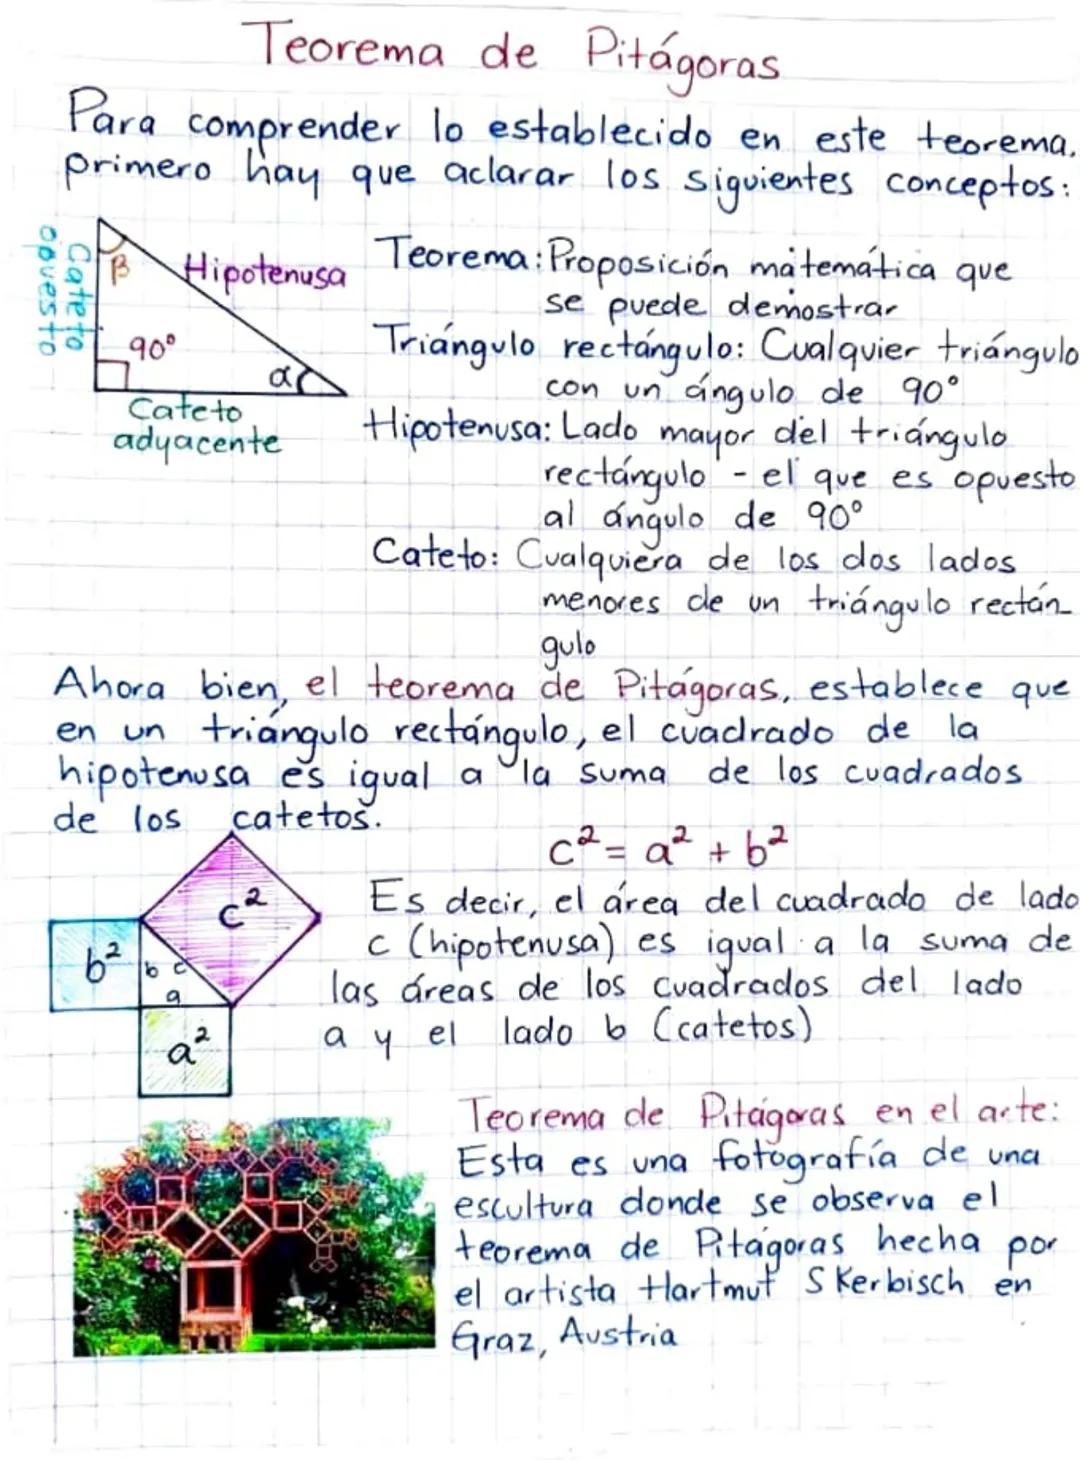 Teorema de Pitágoras
Para comprender lo establecido en este teorema.
primero hay que aclarar los siguientes conceptos:
Cateto
opuesto
β
Hipotenusa
90°
α
Cateto
adyacente
Teorema: Proposición matemática que
se puede demostrar
Triángulo rectángulo: Cualquier triángulo
con un ángulo de 90°
Hipotenusa: Lado mayor del triángulo
rectángulo - el que es opuesto
al ángulo de 90°
Cateto: Cualquiera de los dos lados
menores de un triángulo rectán_
gulo
Ahora bien, el teorema de Pitágoras, establece que
en un triángulo rectángulo, el cuadrado de la
hipotenusa es igual a la suma de los cuadrados
de los catetos.
c² = a² + b²
c²
b²
b c
a
a²
Es decir, el área del cuadrado de lado
c (hipotenusa) es igual a la suma de
las áreas de los cuadrados del lado
a y el lado b (catetos)
Teorema de Pitágoras en el arte:
Esta es una fotografía de una
escultura donde se observa el
teorema de Pitágoras hecha por
el artista Hartmut Skerbisch en
Graz, Austria